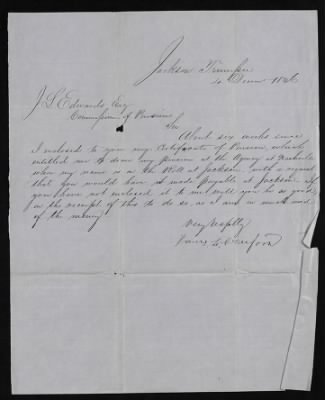 Jackson Tennessee
4 Decem 184
J L Edwards Esq
Commissioner of Pensions
Sir
About six weeks since
I inclosed to you my Certificate of Pension, which
entitled me to draw my pension at the Agency at Nashville
when my name is on the Roll at Jackson. with a request
that you would have it made payable at Jackson. If
you have not inclosed it to me will you be so good
on the receipt of this to do so, as I am in much need
of the money
Very respectfly